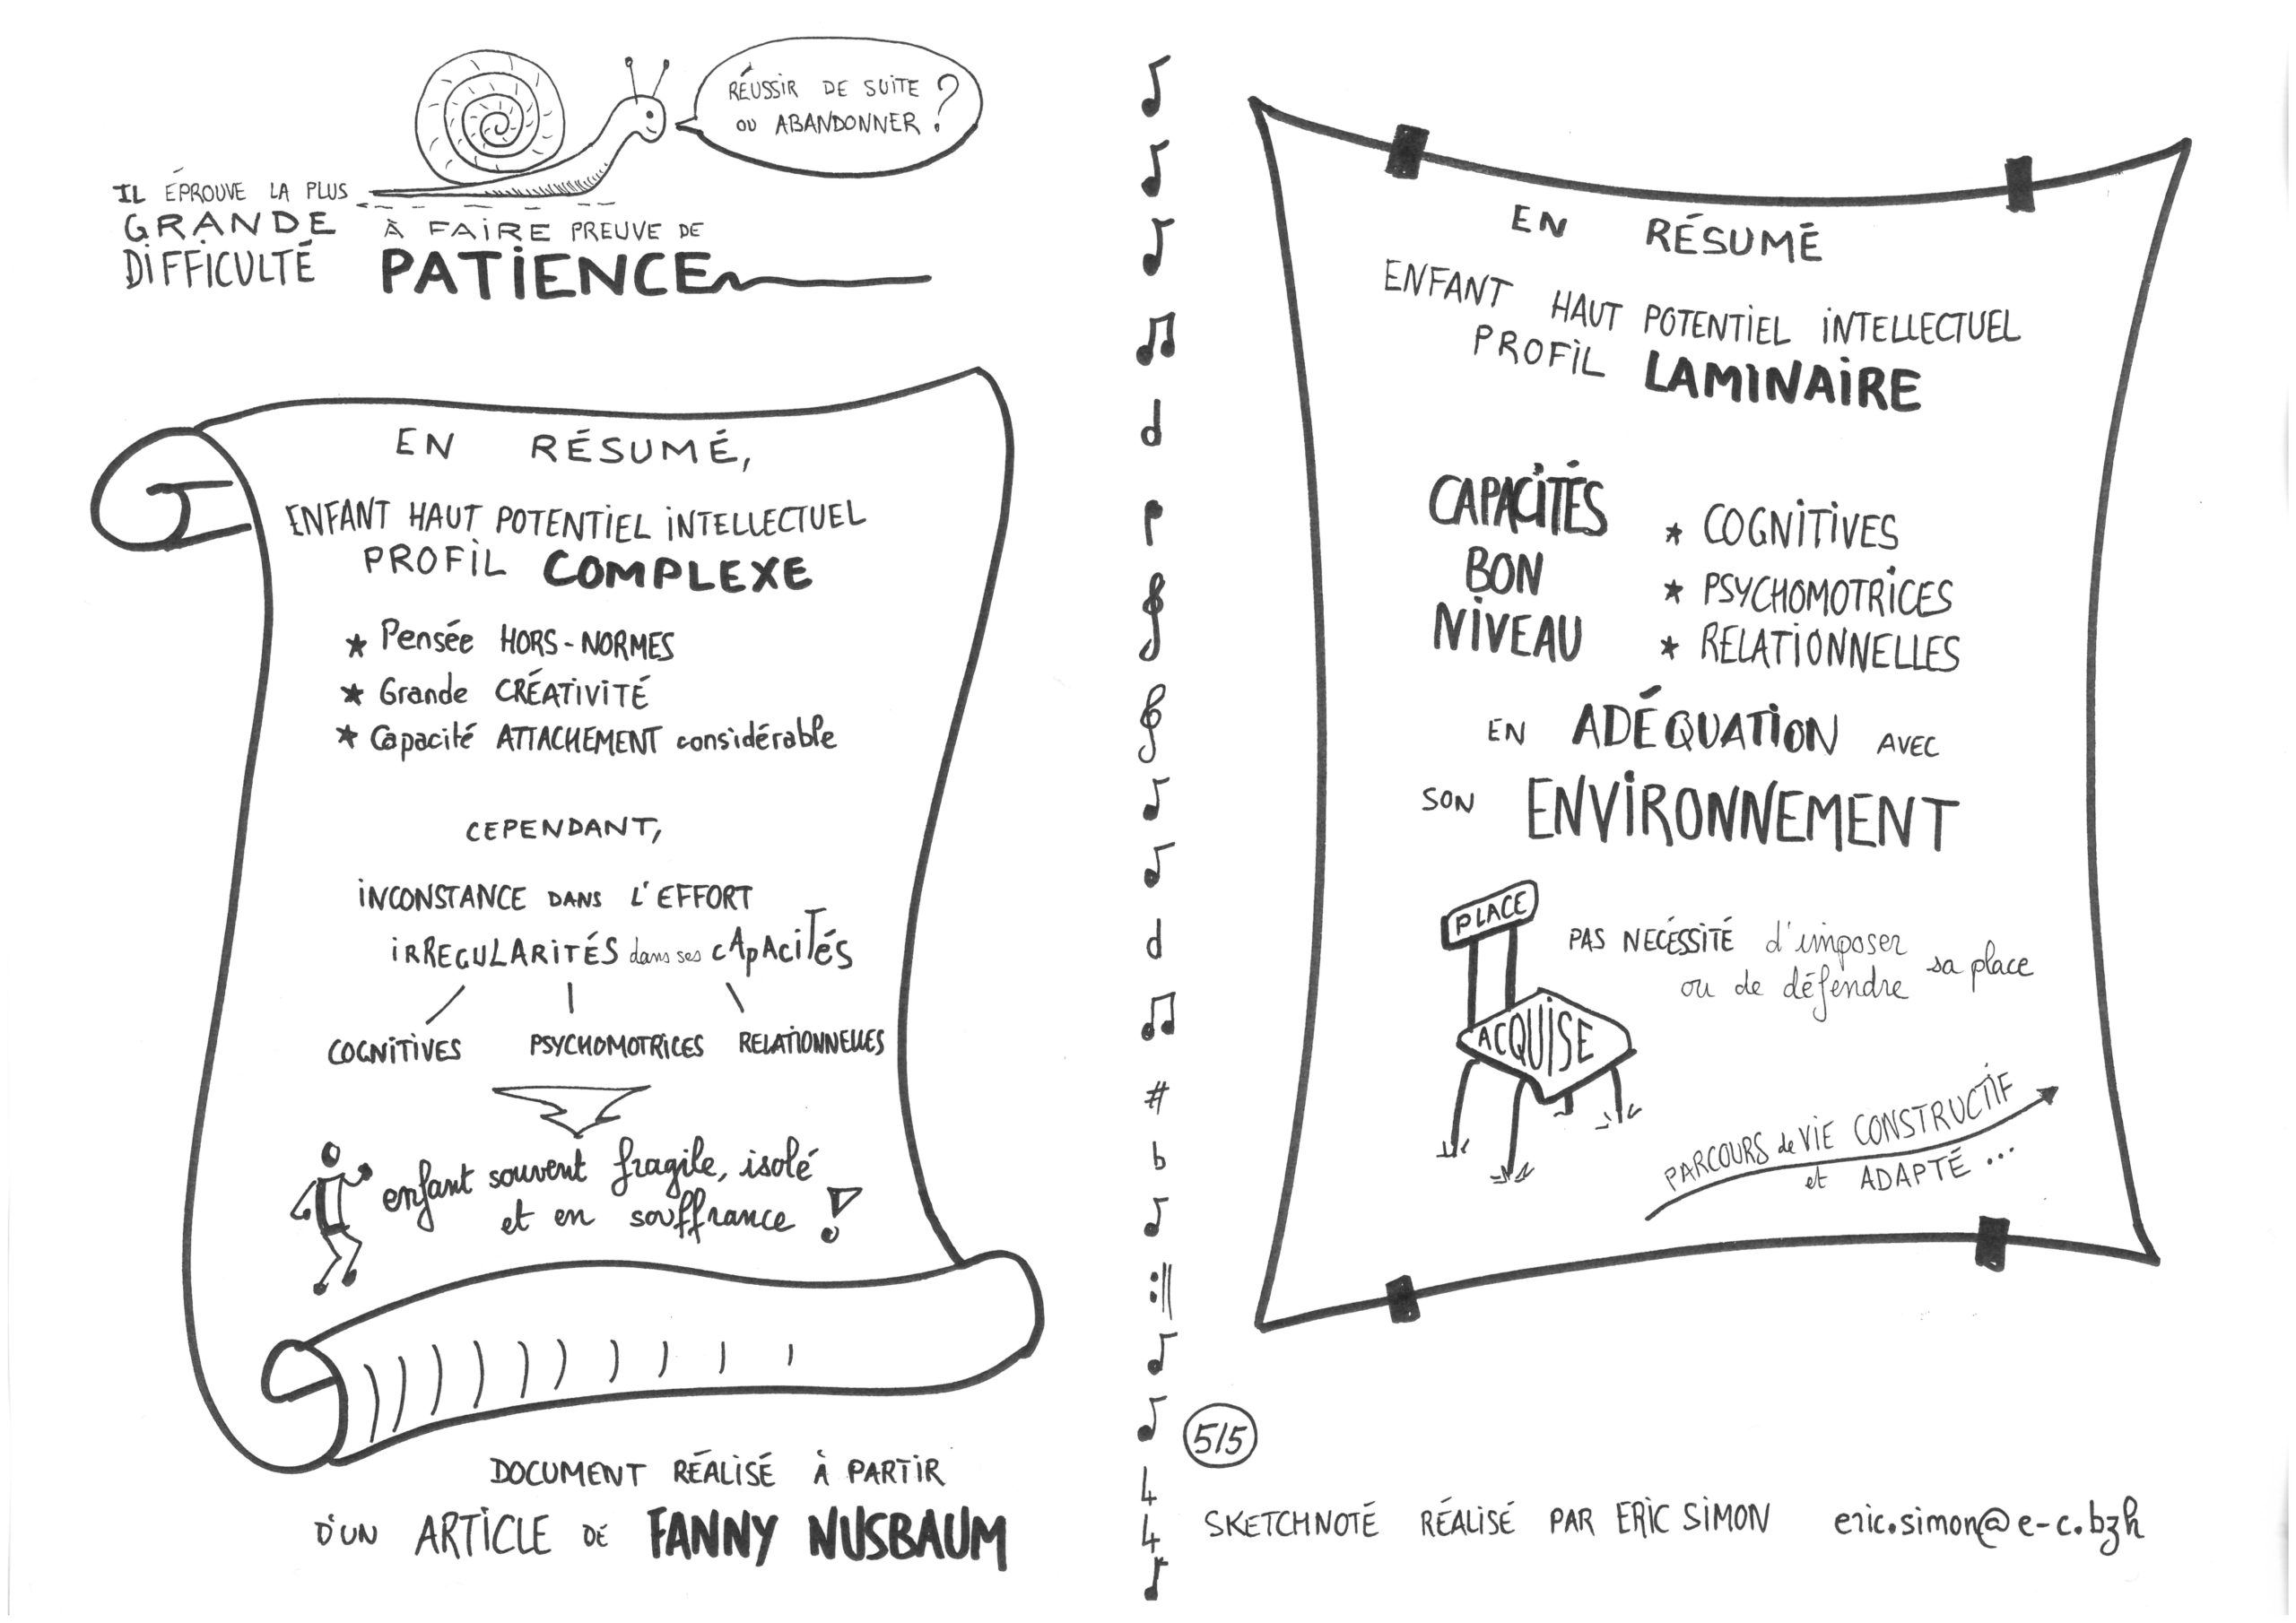 RÉUSSIR DE SUITE
OU ABANDONNER ?
IL ÉPROUVE LA PLUS
GRANDE
DIFFICULTÉ
À FAIRE PREUVE DE
PATIENCE
EN RÉSUMÉ,
ENFANT HAUT POTENTIEL INTELLECTUEL
PROFIL COMPLEXE
★ Pensée HORS-NORMES
★ Grande CRÉATIVITÉ
★ Capacité ATTACHEMENT considérable
CEPENDANT,
INCONSTANCE DANS L'EFFORT
IRREGULARITÉS dans ses CAPACITÉS
COGNITIVES PSYCHOMOTRICES RELATIONNELLES
enfant souvent fragile, isolé
et en souffrance !
DOCUMENT RÉALISÉ À PARTIR
D'UN ARTICLE DE FANNY NUSBAUM
EN RÉSUMÉ
ENFANT HAUT POTENTIEL INTELLECTUEL
PROFIL LAMINAIRE
CAPACITÉS
BON
NIVEAU
★ COGNITIVES
★ PSYCHOMOTRICES
★ RELATIONNELLES
EN ADÉQUATION AVEC
SON ENVIRONNEMENT
PLACE
ACQUISE
PAS NECÉSSITÉ d'imposer
ou de défendre sa place
PARCOURS de VIE CONSTRUCTIF
et ADAPTÉ ...
5/5
4
4
SKETCHNOTÉ RÉALISÉ PAR ERIC SIMON eric.simon@e-c.bzh